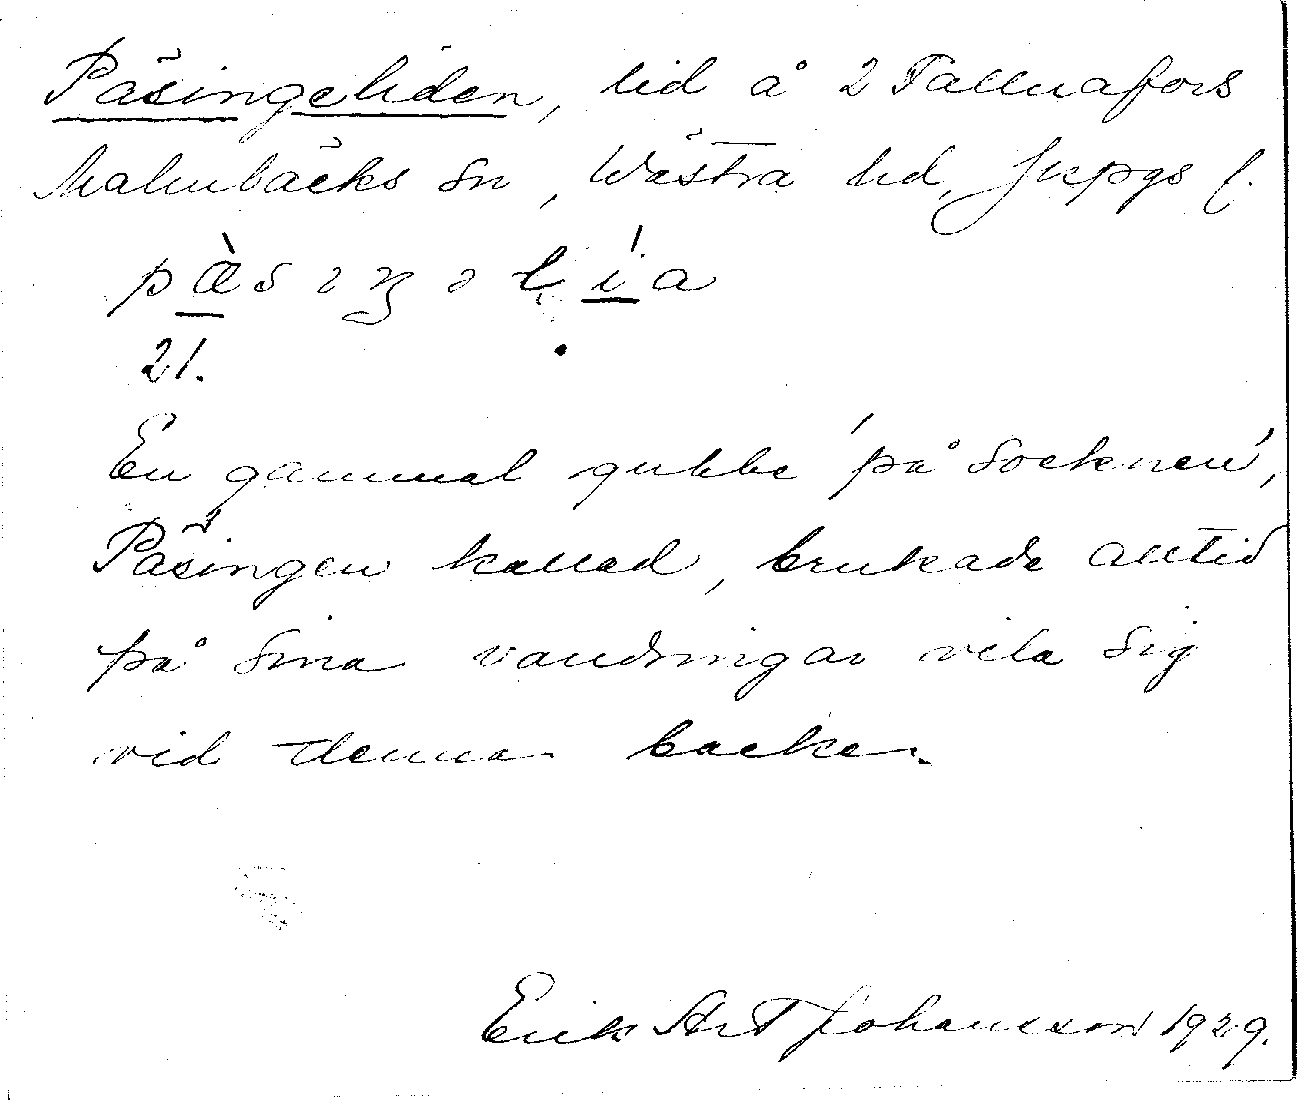 Päsingeliden, lid å 2 Tallnafors
Malmbäcks sn, Västra hd, Jkpgs l.
21.
En gammal gubbe 'på socknen',
Päsingen kallad, brukade alltid
på sina vandringar vila sig
vid denna backe.
Erik Art Johansson 1929.